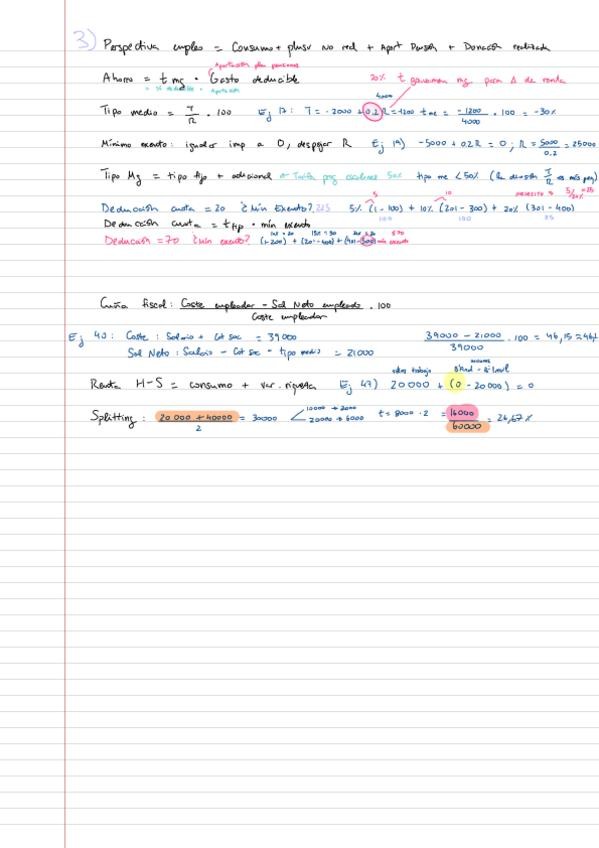 3) Perspectiva empleo = Consumo + plusv No real + Aport Pensión + Donación realizada
Aportación plan pensiones
Ahorro = t mg · Gasto deducible
20% t gravamen mg para Δ de renta
4000
Tipo medio = T/R · 100 Ej 17: T = -2000 + 0,2R = -1200 tme = -1200/4000 · 100 = -30%
Mínimo exento: igualar imp a 0, despejar R Ej 19) -5000 + 0.2R = 0; R = 5000/0.2 = 25000
Tipo Mg = tipo fijo + adicional → Tarifa prog escalones 50% tipo me < 50% (la división T/R es más peq)
5 10 5/20% = 25
Deducción cuota = 20 ¿Mín Exento? 325 5% (1 - 100) + 10% (201 - 300) + 20% (301 - 400)
100 100 25
Deducción cuota = t tip · mín exento
Deducción = 70 ¿Mín exento? (1-200) + (201-400) + (401-500) mín exento
Cuña fiscal: Coste empleador - Sal Neto empleado / Coste empleador · 100
Ej 40: Coste: Salario + Cot soc = 39000 39000 - 21000 / 39000 · 100 = 46,15 = 46%
Sal Neto: Salario - Cot soc - tipo medio = 21000
rdtos trabajo
Renta H-S = consumo + var. riqueza Ej 47) 20000 + (0 - 20000) = 0
Splitting: 20 000 + 40000 / 2 = 30000 < 10000 → 2000 t = 8000 · 2 = 16000 / 60000 = 26,67%
20000 → 6000